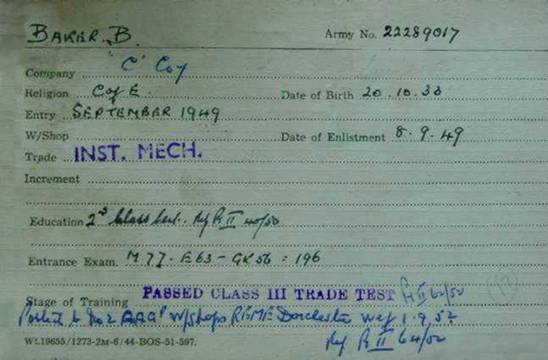 BAKER. B. Army No. 22289017
Company "C" Coy
Religion C of E. Date of Birth 20.10.33
Entry SEPTEMBER 1949
W/Shop Date of Enlistment 8.9.49
Trade INST. MECH.
Increment
Education 2nd Class Cert. Pt II 40/50
Entrance Exam. M77. E63 - GK56 = 196
PASSED CLASS III TRADE TEST Pt II 60/50
Stage of Training
Posted to No 2 W/Shops REME Dorchester wef 1.9.52
Pt II 64/52
Wt.19655/1273-2M-6/44-BOS-51-597.